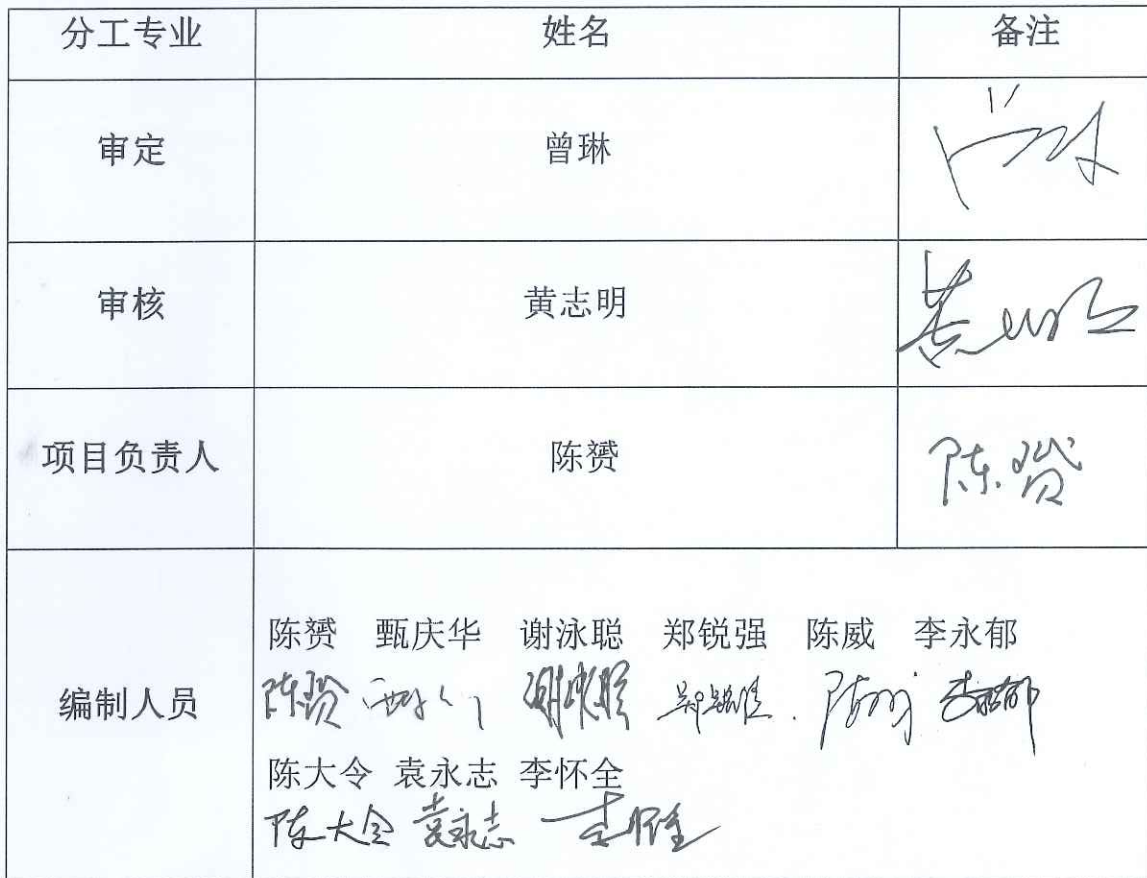 分工专业 姓名 备注
审定 曾琳
审核 黄志明
项目负责人 陈赟 陈赟
编制人员
陈赟 甄庆华 谢泳聪 郑锐强 陈威 李永郁
陈赟 谢泳聪 郑锐强 陈威 李永郁
陈大令 袁永志 李怀全
陈大令 袁永志 李怀全